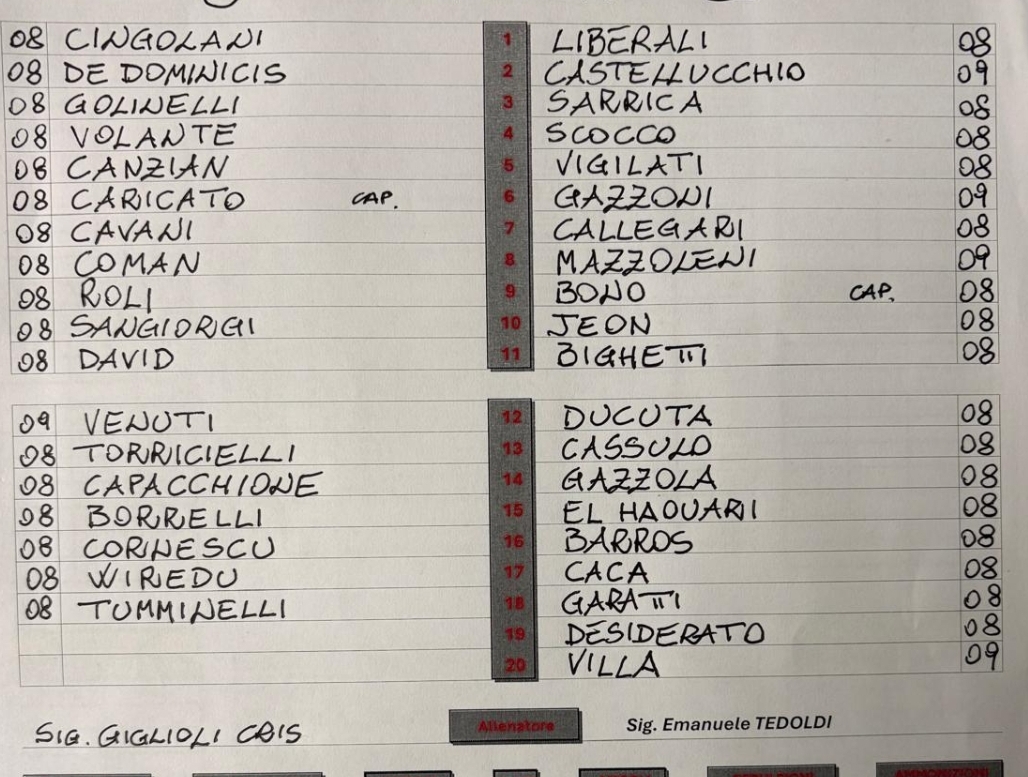 08 CINGOLANI 1 LIBERALI 08
08 DE DOMINICIS 2 CASTELLUCCHIO 09
08 GOLINELLI 3 SARRICA 08
08 VOLANTE 4 SCOCCO 08
08 CANZIAN 5 VIGILATI 08
08 CARICATO CAP. 6 GAZZONI 09
08 CAVANI 7 CALLEGARI 08
08 COMAN 8 MAZZOLENI 09
08 ROLI 9 BONO CAP. 08
08 SANGIORGI 10 JEON 08
08 DAVID 11 BIGHETTI 08
09 VENUTI 12 DUCUTA 08
08 TORRICIELLI 13 CASSULO 08
08 CAPACCHIONE 14 GAZZOLA 08
08 BORRELLI 15 EL HAOUARI 08
08 CORNESCU 16 BARROS 08
08 WIREDU 17 CACA 08
08 TUMMINELLI 18 GARATTI 08
19 DESIDERATO 08
20 VILLA 09
SIG. GIGLIOLI Allenatore Sig. Emanuele TEDOLDI